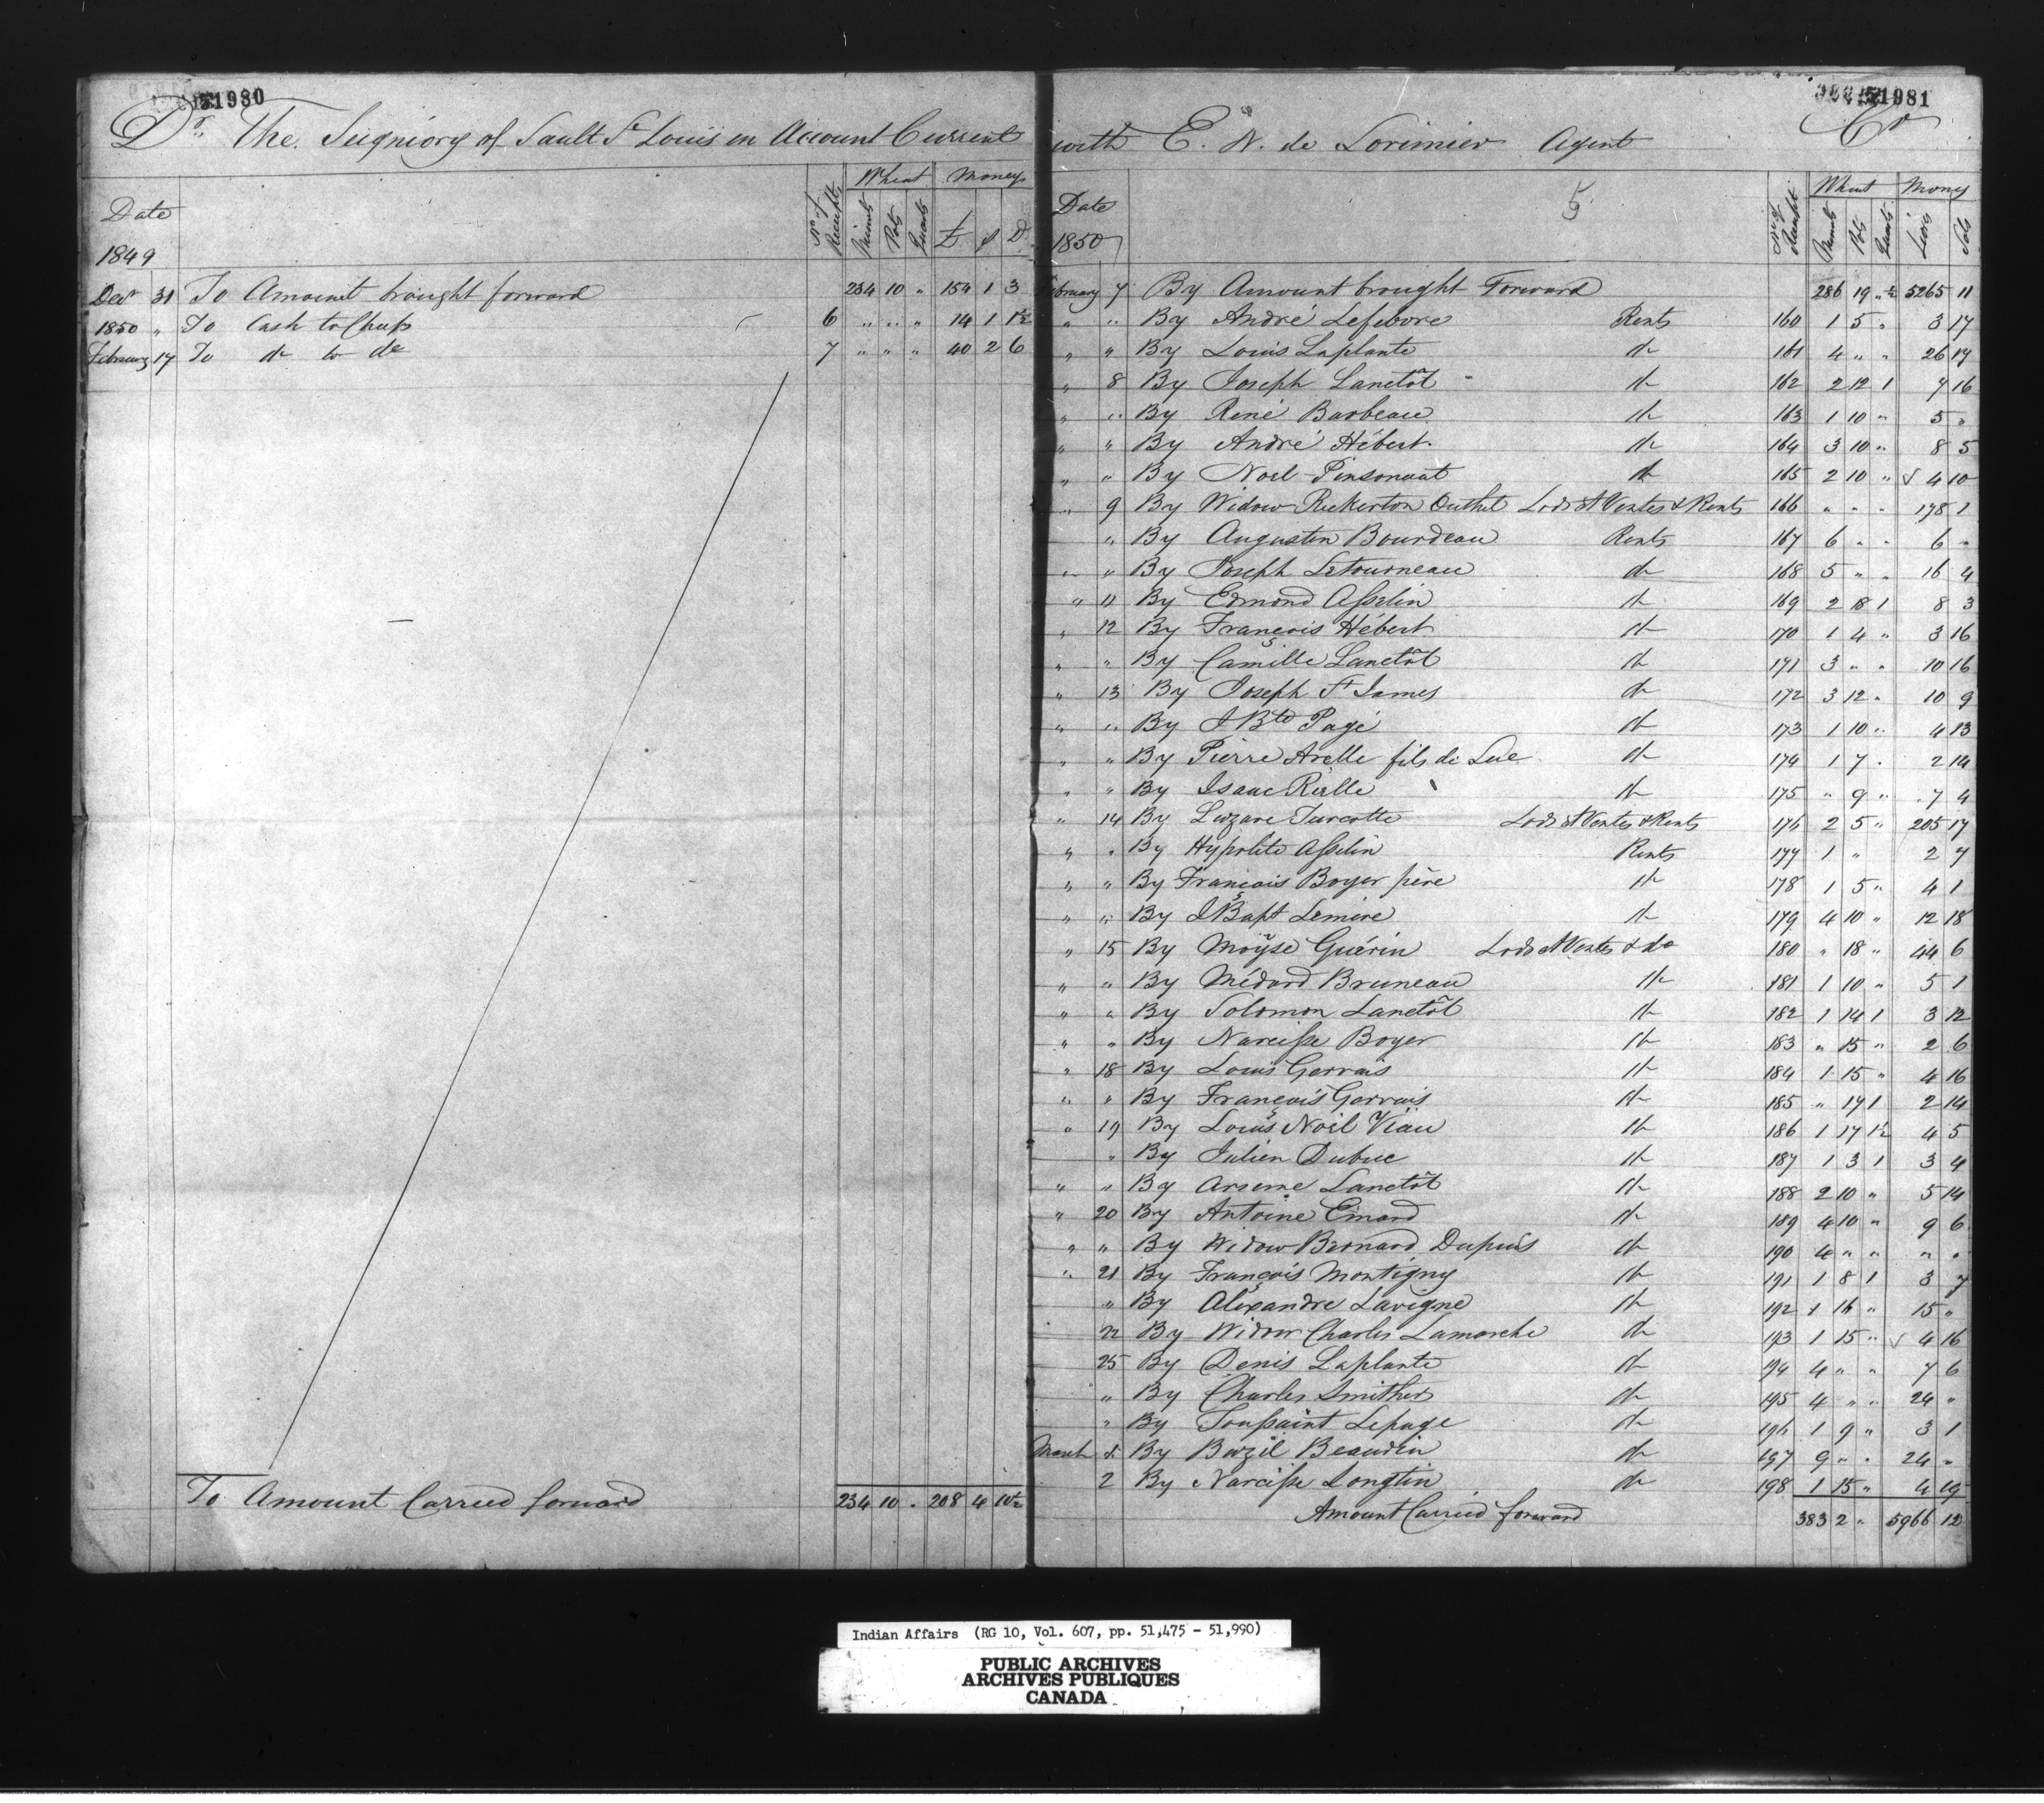 51980
Dr. The Seigniory of Sault St Louis in Account Current
Wheat Money
Date No of Receipts Minots Pots Quarts £ s D
1849
Decr 31 To Amount brought forward 234 10 " 154 1 3
1850 " To Cash to Chiefs 6 " " " 14 1 1½
February 17 To do to do 7 " " " 40 2 6
To Amount Carried forward 234 10 " 208 4 10½
51981
with E. N. de Lorimier Agent Cr
5 Wheat Money
Date No of Receipt Minots Pots Quarts Livres Sols
1850
February 7 By Amount brought Forward 286 19 " ½ 5265 11
" " By André Lefebvre Rents 160 1 5 " 3 17
" " By Louis Laplante do 161 4 " " 26 17
" 8 By Joseph Lanctôt do 162 2 12 1 7 16
" " By René Barbeau do 163 1 10 " 5 "
" " By André Hébert do 164 3 10 " 8 5
" " By Noel Pinsonaut do 165 2 10 " √ 4 10
" 9 By Widow Rickerton Outhet Lods et Ventes & Rents 166 " " " 178 1
" By Augustin Bourdeau Rents 167 6 " " 6 "
" " By Joseph Letourneau do 168 5 " " 16 4
" 11 By Edmond Asselin do 169 2 18 1 8 3
" 12 By François Hébert do 170 1 4 " 3 16
" " By Camille Lanctôt do 171 3 " " 10 16
" 13 By Joseph St James do 172 3 12 " 10 9
" " By J Bte Pagé do 173 1 10 " 4 13
" " By Pierre Arelle fils de Luc do 174 1 7 " 2 14
" " By Isaac Rielle do 175 " 9 " 7 4
" 14 By Lazare Turcotte Lods et Ventes & Rents 176 2 5 " 205 17
" " By Hypolite Asselin Rents 177 1 " 2 7
" " By François Boyer père do 178 1 5 " 4 1
" " By J Bapt Lemire do 179 4 10 " 12 18
" 15 By Moÿse Guérin Lods et Ventes & do 180 " 18 " 44 6
" " By Médard Bruneau do 181 1 10 " 5 1
" " By Solomon Lanctôt do 182 1 14 1 3 12
" " By Narcisse Boyer do 183 " 15 " 2 6
" 18 By Louis Gervais do 184 1 15 " 4 16
" " By François Gervais do 185 " 17 1 2 14
" 19 By Louis Noël Viau do 186 1 17 1½ 4 5
" By Julien Dubuc do 187 1 3 1 3 4
" " By Arsene Lanctôt do 188 2 10 " 5 14
" 20 By Antoine Emard do 189 4 10 " 9 6
" " By Widow Bernard Dupuis do 190 4 " " " "
" 21 By François Montigny do 191 1 8 1 3 7
" By Alexandre Lavigne do 192 1 16 " 15 "
22 By Widow Charles Lamarche do 193 1 15 " √ 4 16
25 By Denis Laplante do 194 4 " " 7 6
" By Charles Smither do 195 4 " " 24 "
" By Toussaint Lepage do 196 1 9 " 3 1
March By Bazil Beaudin do 197 9 " " 24 "
2 By Narcisse Longtin do 198 1 15 " 4 19
Amount Carried forward 383 2 " 5966 12
Indian Affairs (RG 10, Vol. 607, pp. 51,475 - 51,990)
PUBLIC ARCHIVES
ARCHIVES PUBLIQUES
CANADA